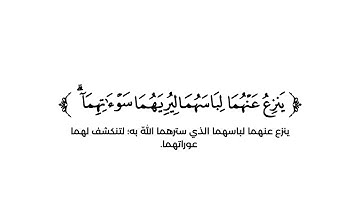 ﴿ يَنزِعُ عَنْهُمَا لِبَاسَهُمَا لِيُرِيَهُمَا سَوْءَٰتِهِمَآ ۗ ﴾
ينزع عنهما لباسهما الذي سترهما الله به؛ لتنكشف لهما
عوراتهما.